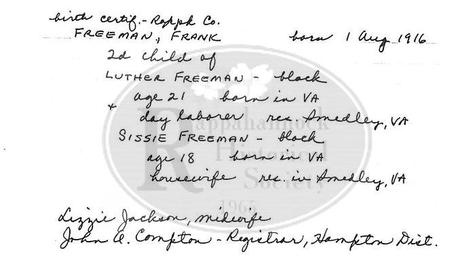 birth certif. - Rapph Co.
FREEMAN, FRANK born 1 Aug 1916
2d child of
LUTHER FREEMAN - black
age 21 born in VA
+ day laborer res. Smedley, VA
SISSIE FREEMAN - black
age 18 born in VA
housewife res. in Smedley, VA
Lizzie Jackson, midwife
John A. Compton - Registrar, Hampton Dist.
Rappahannock
Historical
Society
1965